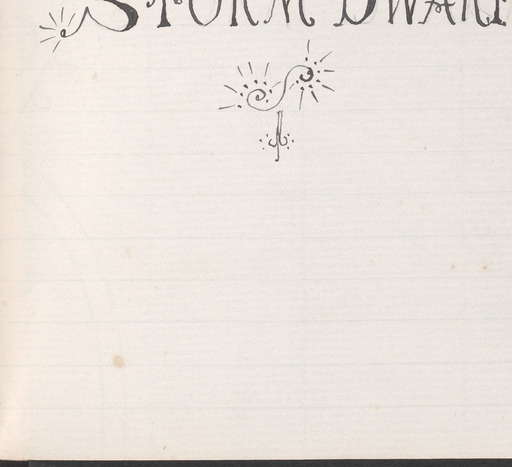 STORM DWARF